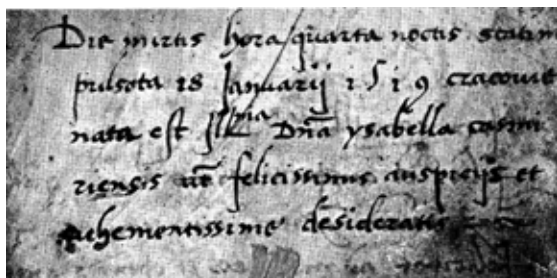 Die mirtis hora quarta noctis statim
pulsota 18 Januarij 1519 cracovie
nata est Ill^ma Dña ysabella casmi
riensis felicissimis auspicijs et
vehementissime desideratis